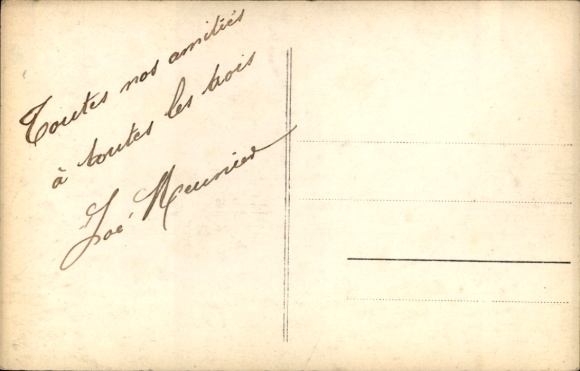 Toutes nos amitiés
à toutes les trois
Zoé Meunier